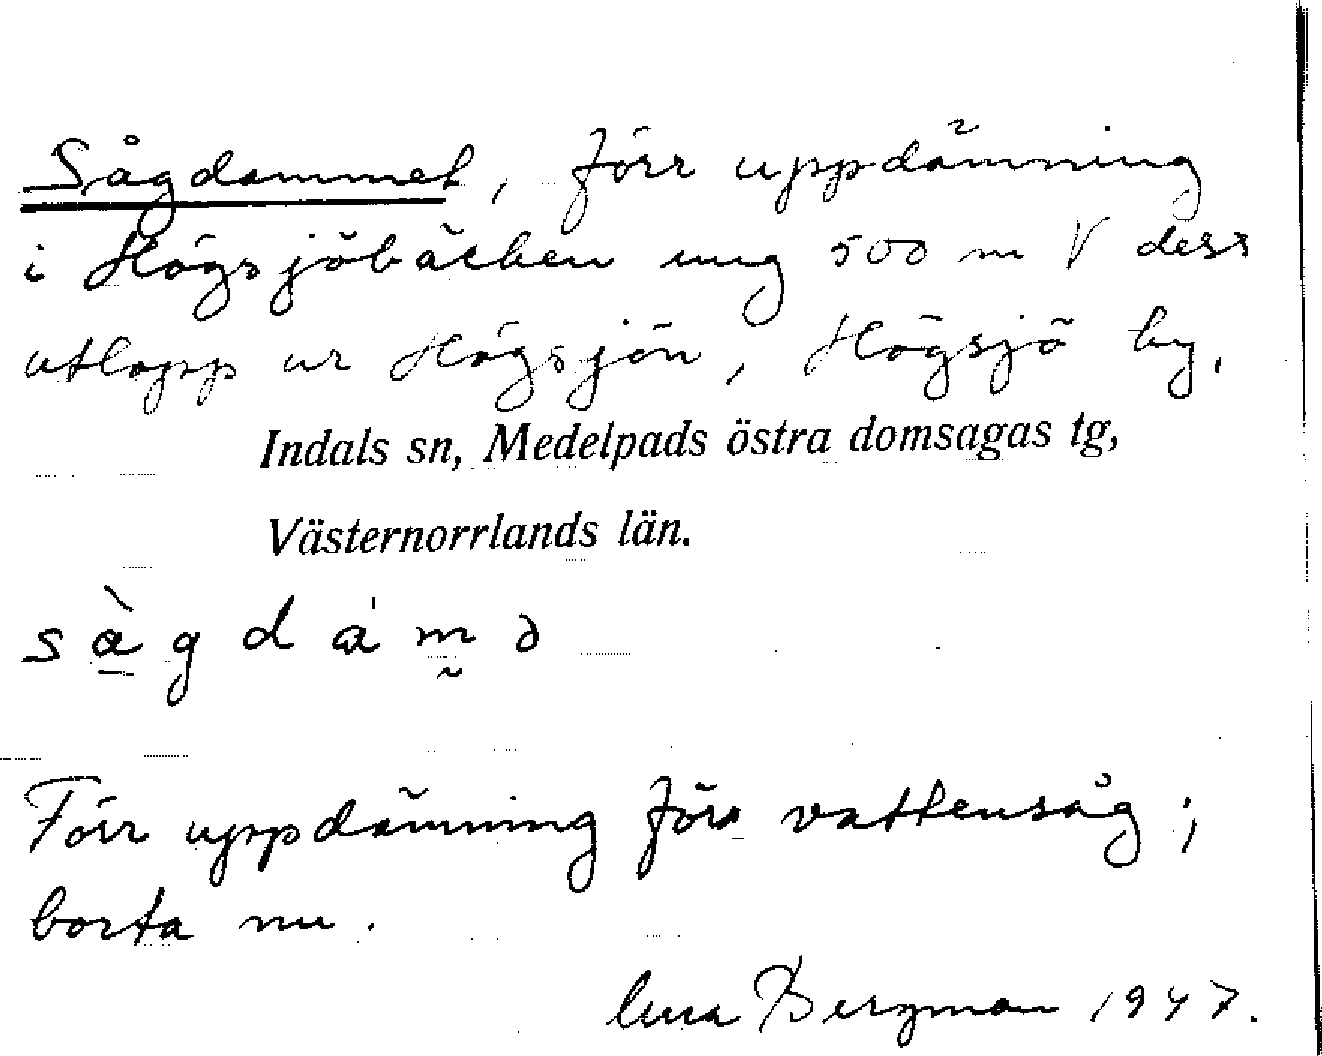 Sågdammet, förr uppdämning
i Högsjöbäcken ung 500 m V dess
utlopp ur Högsjön, Högsjö by,
Indals sn, Medelpads östra domsagas tg,
Västernorrlands län.
Förr uppdämning för vattensåg;
borta nu.
Bergman 1947.